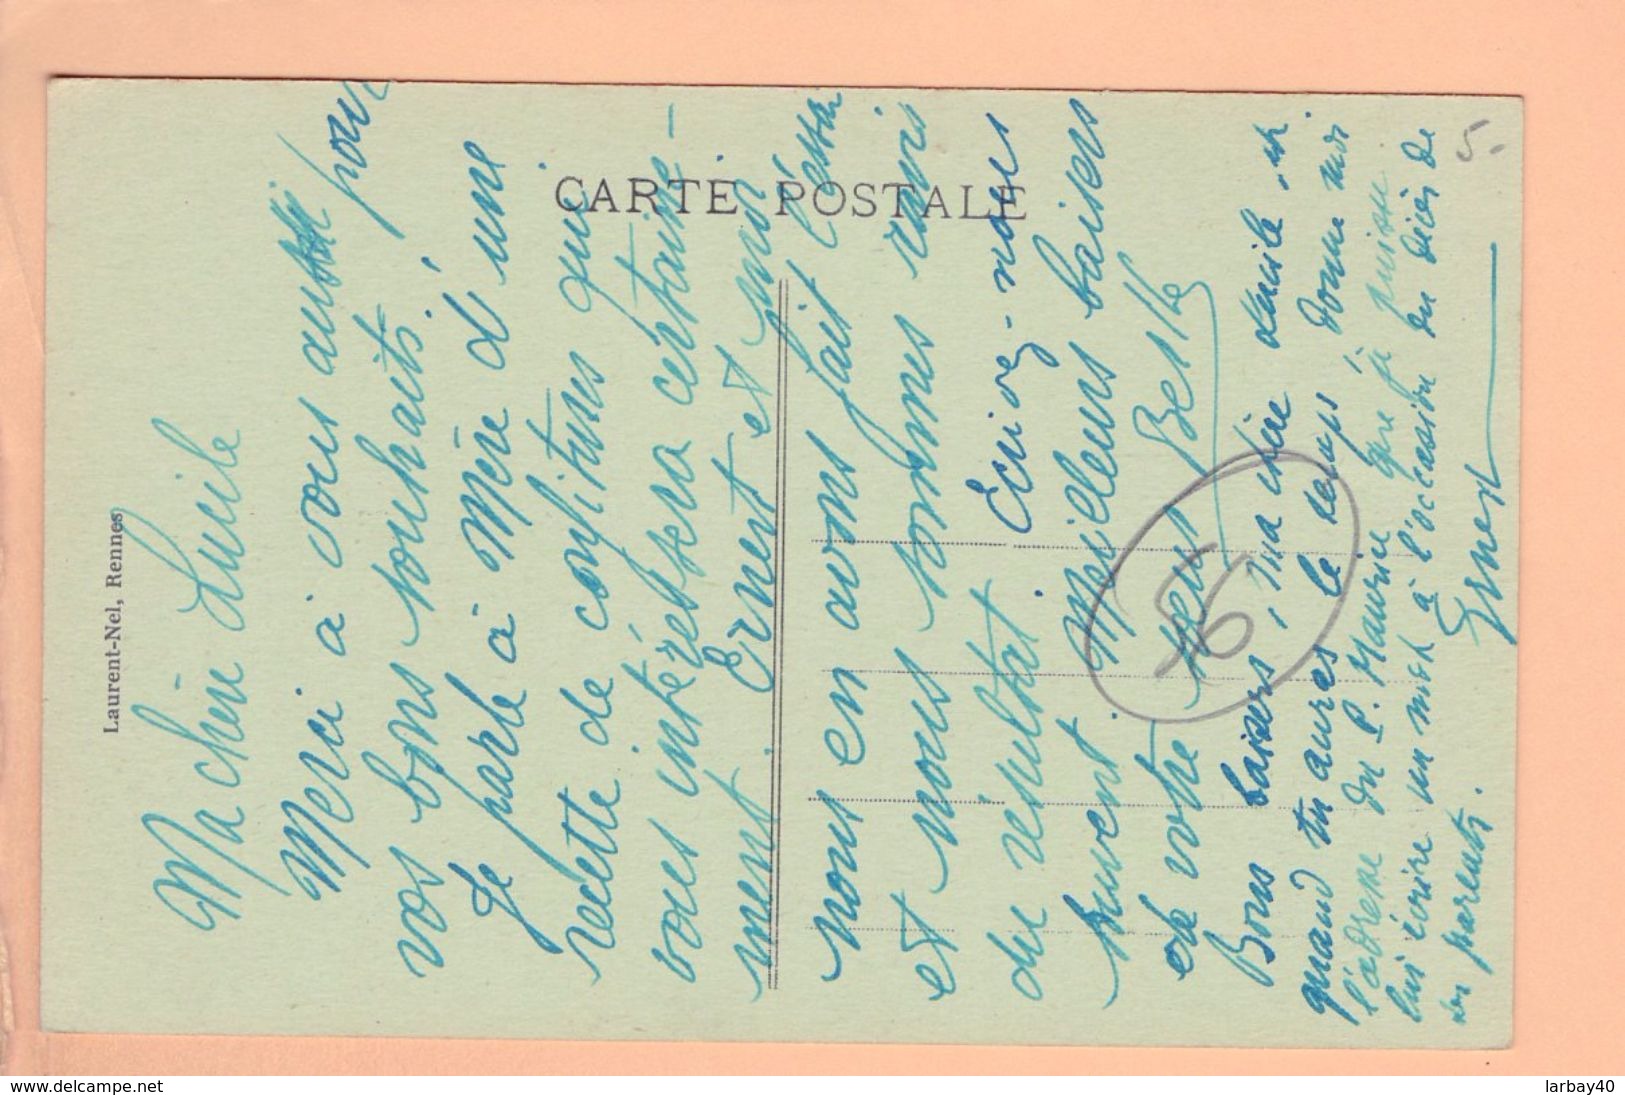 CARTE POSTALE
Laurent-Nel, Rennes
Ma chère Lucile
Merci à vous aussi pour
vos bons souhaits !
Je parle à Mère d'une
recette de confitures qui
vous intéressera certaine-
ment. Ernest et moi
nous en avons fait l'essai
et nous sommes ravis
du résultat. Ecrivez-nous
souvent. Meilleurs baisers
de votre sœur
Bons baisers, ma chère Lucile et
quand tu auras le temps donne moi
l'adresse du P. Maurice que je puisse
lui écrire un mot à l'occasion du décès de
ses parents.
Ernest
56
5.
www.delcampe.net
larbay40